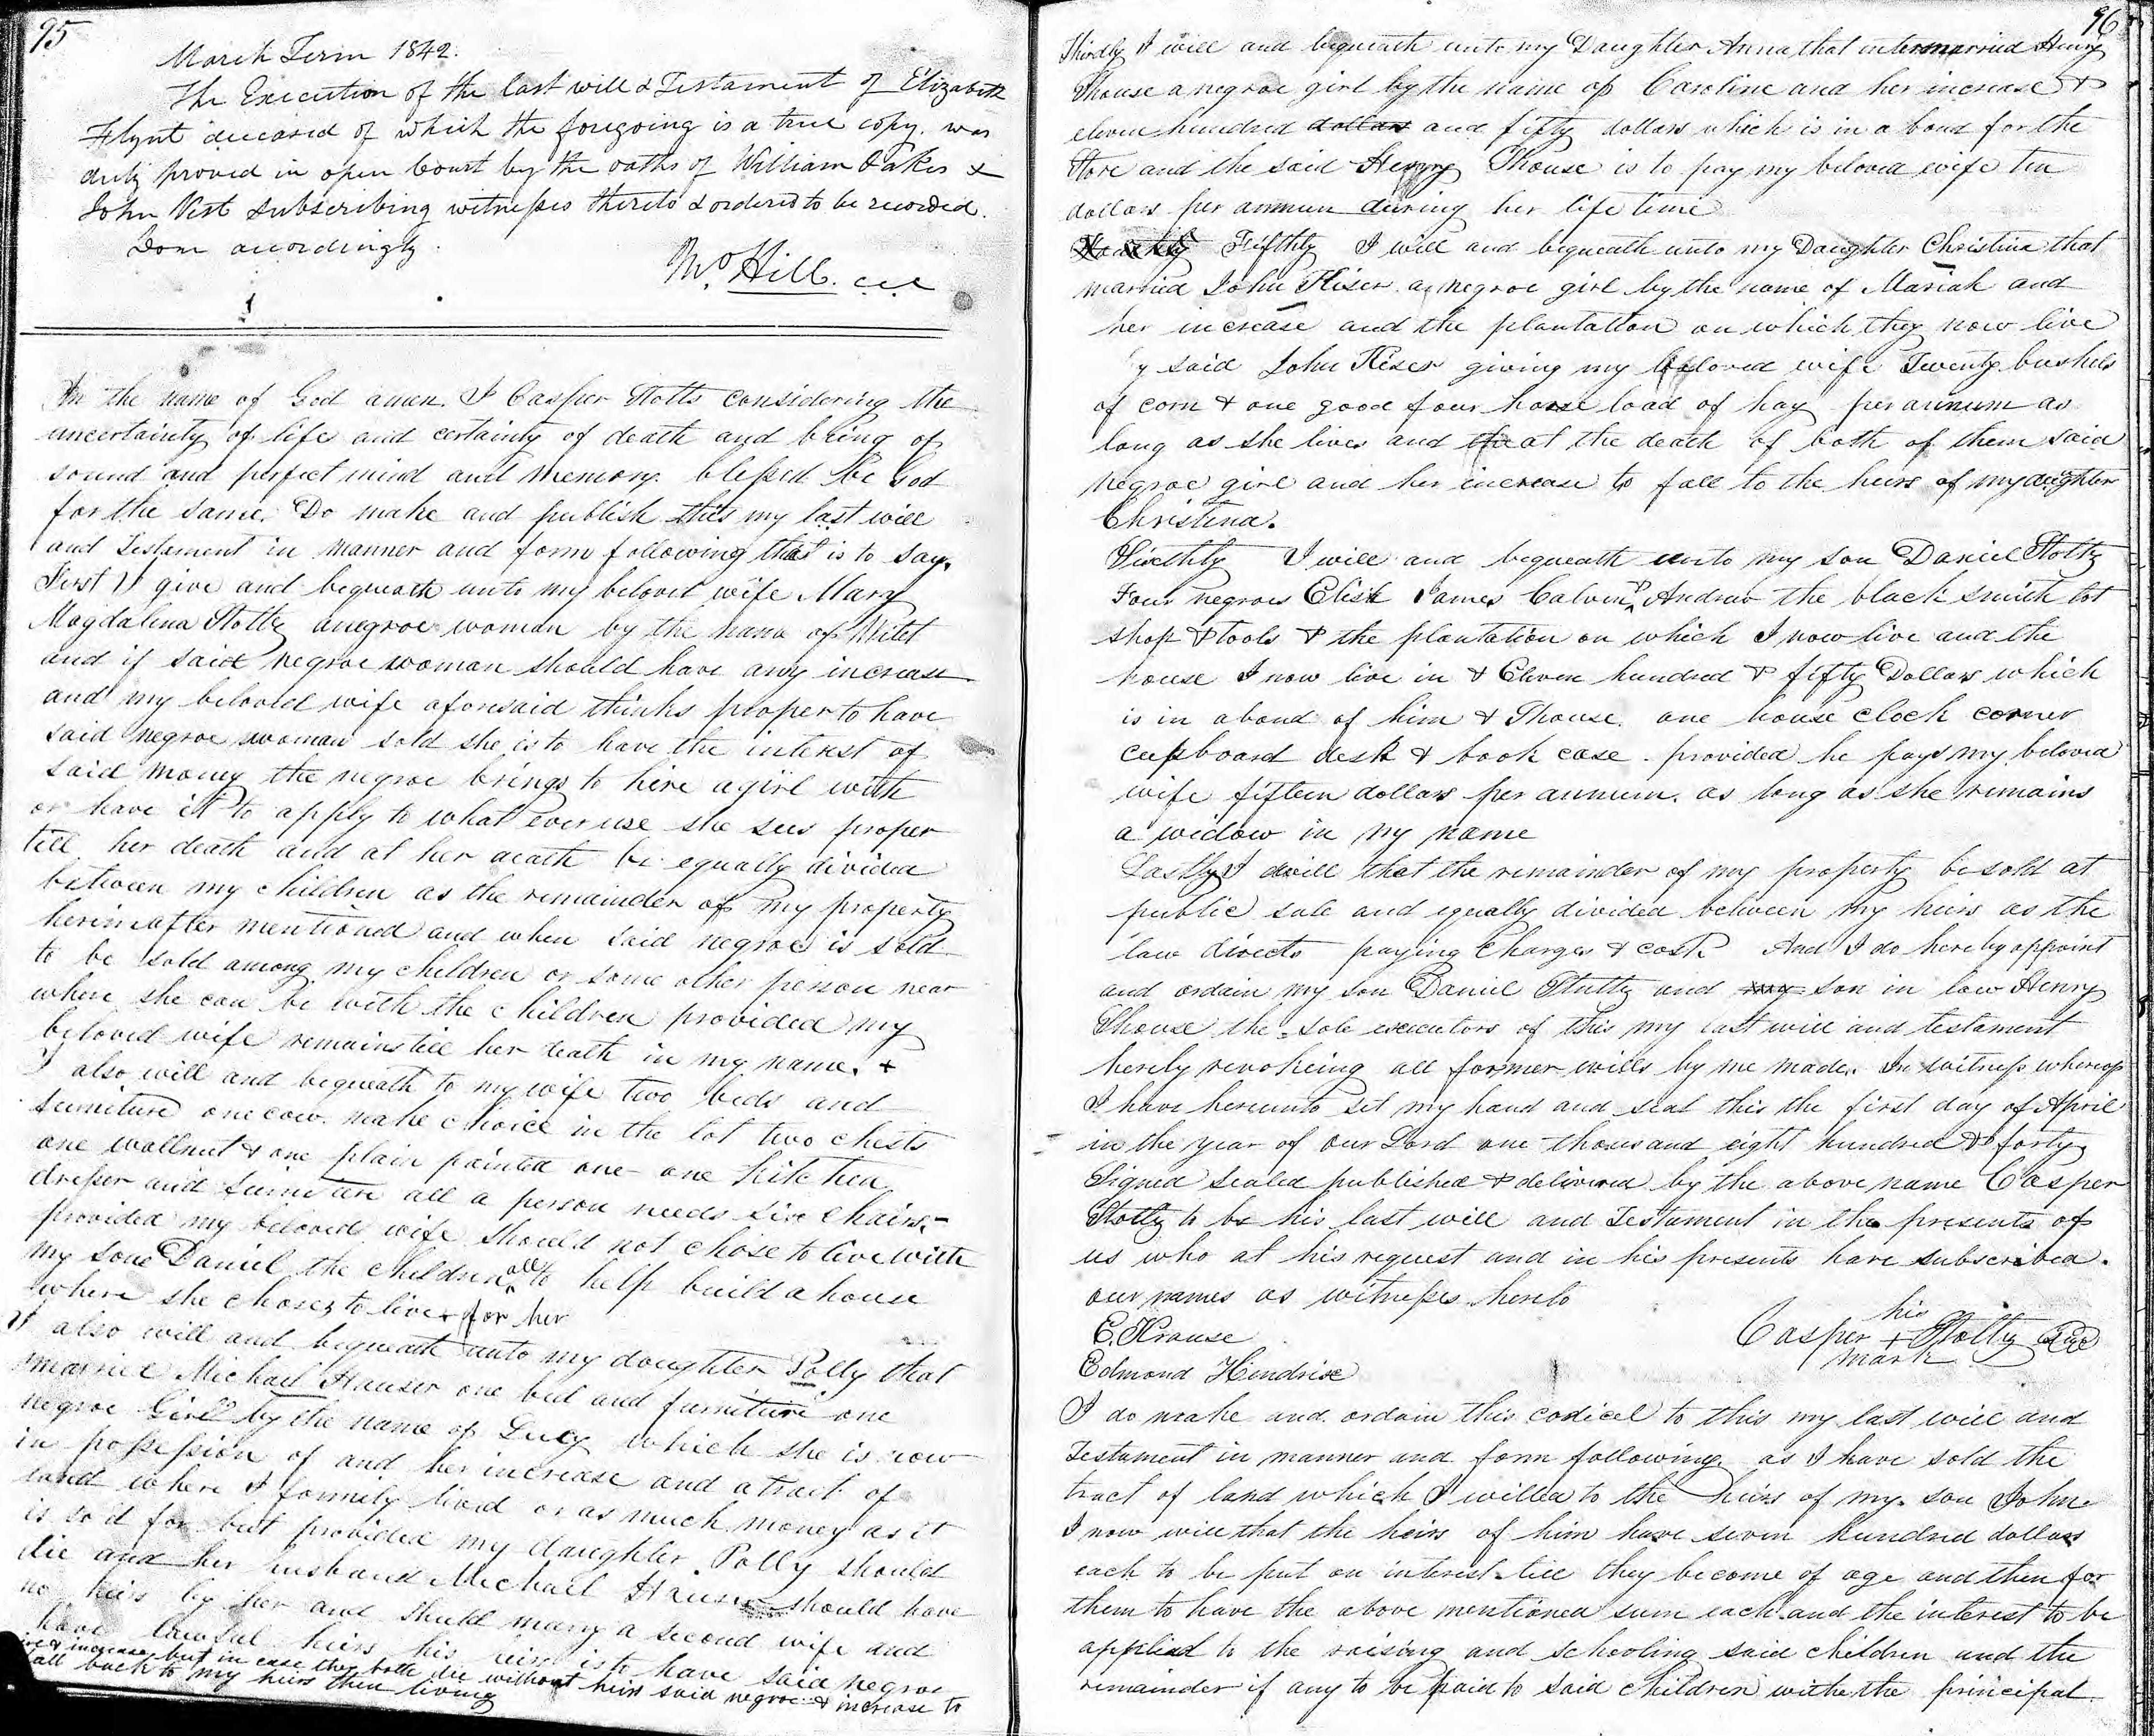 95
March Term 1842.
The Execution of the last will & Testament of Elizabeth
Flynt deceased of which the foregoing is a true copy. was
duly proved in open Court by the oaths of William Oakes &
John Vest subscribing witnesses thereto & ordered to be recorded.
Done accordingly.
Mo. Hill. cec
In the name of God amen. I Casper Stolts considering the
uncertainty of life and certainty of death and being of
sound and perfect mind and memory. blessed be God
for the same. Do make and publish this my last will
and Testament in manner and form following that is to say.
First I give and bequeath unto my beloved wife Mary
Magdalina Stoltz anegroe woman by the name of Milet
and if said negroe woman should have any increase
and my beloved wife aforesaid thinks proper to have
said negroe woman sold she is to have the interest of
said money the negroe brings to hire agirl with
or have it to apply to what ever use she sees proper
till her death and at her death be equally divided
between my children as the remainder of my property
herinafter mentioned and when said negroe is sold
to be sold among my children or some other person near
where she can be with the children provided my
beloved wife remains till her death in my name. +
I also will and bequeath to my wife two beds and
furniture one cow. make choice in the lot two chests
one wallnut & one plain painted one one kitchen
dresser and furniture all a person needs six chairs.
provided my beloved wife should not chose to live with
my sone Daniel the children all to help build a house
where she choses to live for her
I also will and bequeath unto my daughter Polly that
married Michael Hauser one bed and furniture one
negroe Girl by the name of Lucy which she is now
in possession of and her increase and atract of
land where I formely lived or as much money as it
is sold for but provided my daughter Polly should
die and her husband Michael Hauser should have
no heirs by her and should marry a second wife and
have lawful heirs his heirs is to have said negroe
& increase but in case they both die without heirs said negroe & increase to
fall back to my heirs then living
96
Thirdly I will and bequeath unto my Daughter Anna that intermarried Henry
Shouse a negroe girl by the name of Caroline and her increase &
eleven hundred dollars and fifty dollars which is in a bond for the
Store and the said Henry Shouse is to pay my beloved wife ten
dollars per annum during her life time
Fifthly I will and bequeath unto my Daughter Christina that
married John Kiser a negroe girl by the name of Mariah and
her increase and the plantation on which they now live
by said John Kiser giving my beloved wife Twenty bushels
of corn & one good four horse load of hay per annum as
long as she lives and at the death of both of them said
negroe girl and her increase to fall to the heirs of my dighter
Christina.
Sixthly I will and bequeath unto my son Daniel Stoltz
Four negroes Elish James Calvin & Andrew the black smith lot
shop & tools & the plantation on which I now live and the
house I now live in & Eleven hundred & fifty Dollars which
is in abond of him & Shouse. one house clock corner
cupboard desk & book case. provided he pays my beloved
wife fifteen dollars per annum. as long as she remains
a widow in my name
Lastly I will that the remainder of my property be sold at
public sale and equally divided between my heirs as the
law directs paying Charges & cost. And I do hereby appoint
and ordain my son Daniel Stultz and my son in law Henry
Shouse the sole executors of this my last will and testament
hereby revokeing all former wills by me made. In witness whereof
I have hereunto set my hand and seal this the first day of April
in the year of our Lord one thousand eight hundred & forty
Signed sealed published & delivered by the above name Casper
Stoltz to be his last will and Testament in the presents of
us who at his request and in his presents have subscribed.
our names as witnesses hereto
his
E. Krause Casper + Stoltz Seal
mark
Edmond Hendrix
I do make and ordain this codicel to this my last will and
Testament in manner and form following. as I have sold the
tract of land which I willed to the heirs of my son John.
I now will that the heirs of him have seven hundred dollars
each to be put on interest till they become of age and then for
them to have the above mentioned sum each and the interest to be
applied to the raising and schooling said children and the
remainder if any to be paid to said children withe the principal.